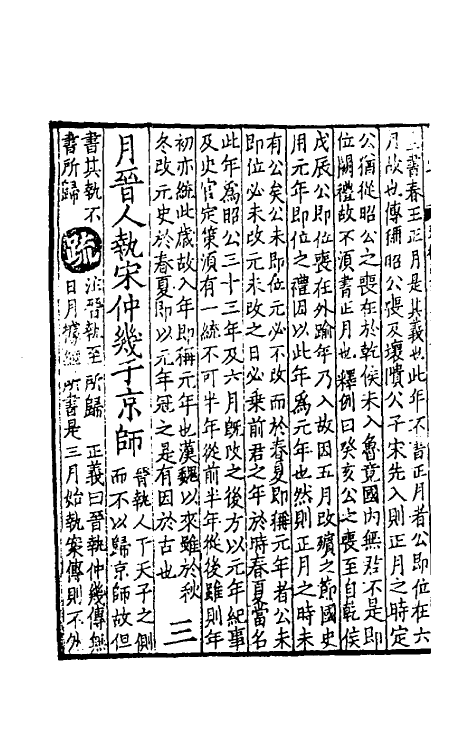 書春王正月是其義也此年不書正月者公即位在六
月故也傳稱昭公喪及壞隤公子宋先入則正月之時定
公猶從昭公之喪在於乾侯未入魯竟國內無君不是即
位闕禮故不須書正月也釋例曰癸亥公之喪至自乾侯
戊辰公即位喪在外踰年乃入故因五月改殯之節國史
用元年即位之禮因以此年為元年也然則正月之時未
有公矣公未即位元必不改而於春夏即稱元年者公未
即位必未改元未改之日必乗前君之年於時春夏當名
此年為昭公三十三年及六月既改之後方以元年紀事
及史官定策須有一統不可半年從前半年從後雖則年
初亦統此歲故入年即稱元年也漢魏以來雖於秋
冬改元史於春夏即以元年冠之是有因於古也 三
月晉人執宋仲幾于京師 晉執人于天子之側
而不以歸京師故但
書其執不
書所歸 疏 注晉執至所歸 正義曰晉執仲幾傳無
日月據經所書是三月始執案傳則不外